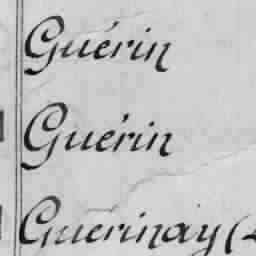 Guérin
Guérin
Guerinay (